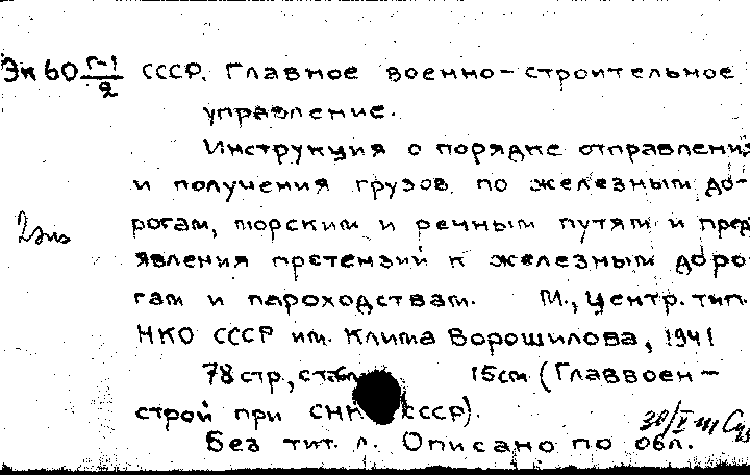 Эк 60 Г-1/2 СССР. Главное военно-строительное
управление.
Инструкция о порядке отправления
и получения грузов по железным до-
рогам, морским и речным путям и пред
2 экз
явления претензий к железным доро
гам и пароходствам. М., Центр. тип.
НКО СССР им. Клима Ворошилова, 1941
78 стр., с табл. 15 см (Главвоен-
строй при СНК СССР).
Без тит. л. Описано по обл.